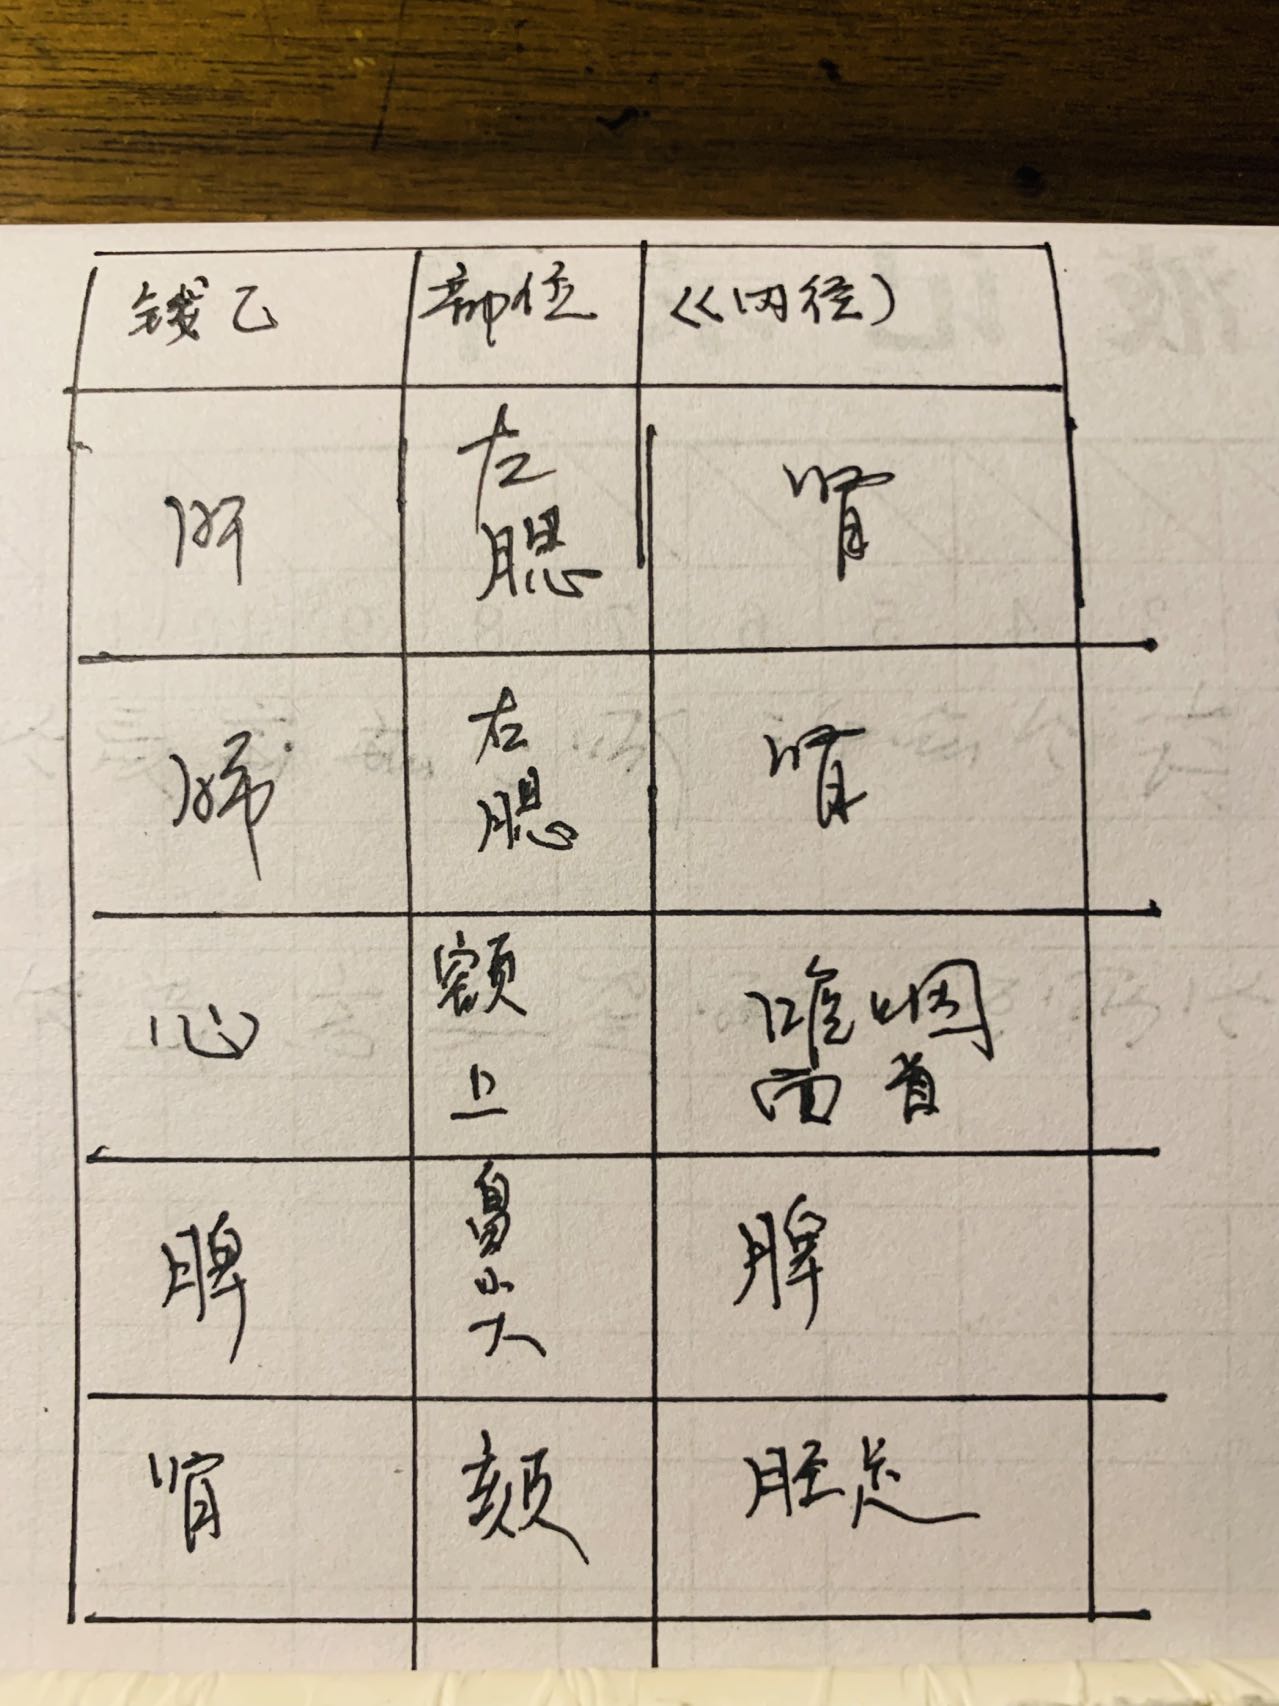 钱乙 部位 《内径）
肝 左腮 肾
肺 右腮 肾
心 额上 咽
面首
脾 鼻 脾
肾 颏 胫足